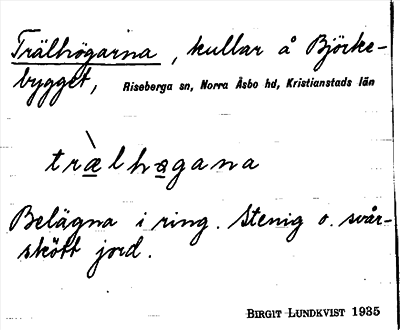 Trälhögarna, kullar å Björke-
bygget, Riseberga sn, Norra Åsbo hd, Kristianstads län
træ̀lhøgana
Belägna i ring. Stenig o. svår-
skött jord.
BIRGIT LUNDKVIST 1935